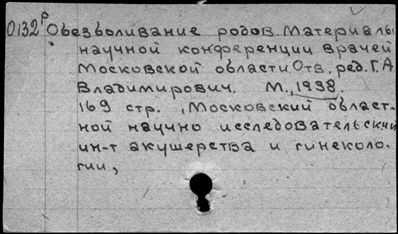 0132р Обезболивание родов. Материалы
научной конференции врачей
Московской области. Отв. ред. Г.А.
Владимирович. М., 1938.
169 стр. (Московский област-
ной научно исследовательский
ин-т акушерства и гинеколо-
гии,